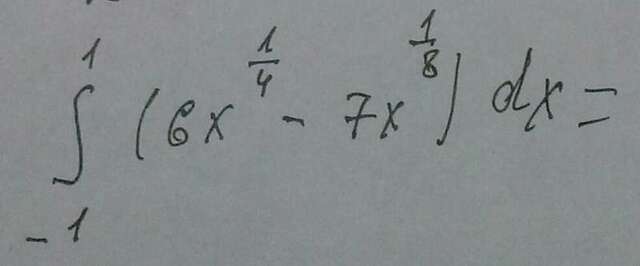 ∫_{-1}^{1} (6x^{1/4} - 7x^{1/8}) dx =